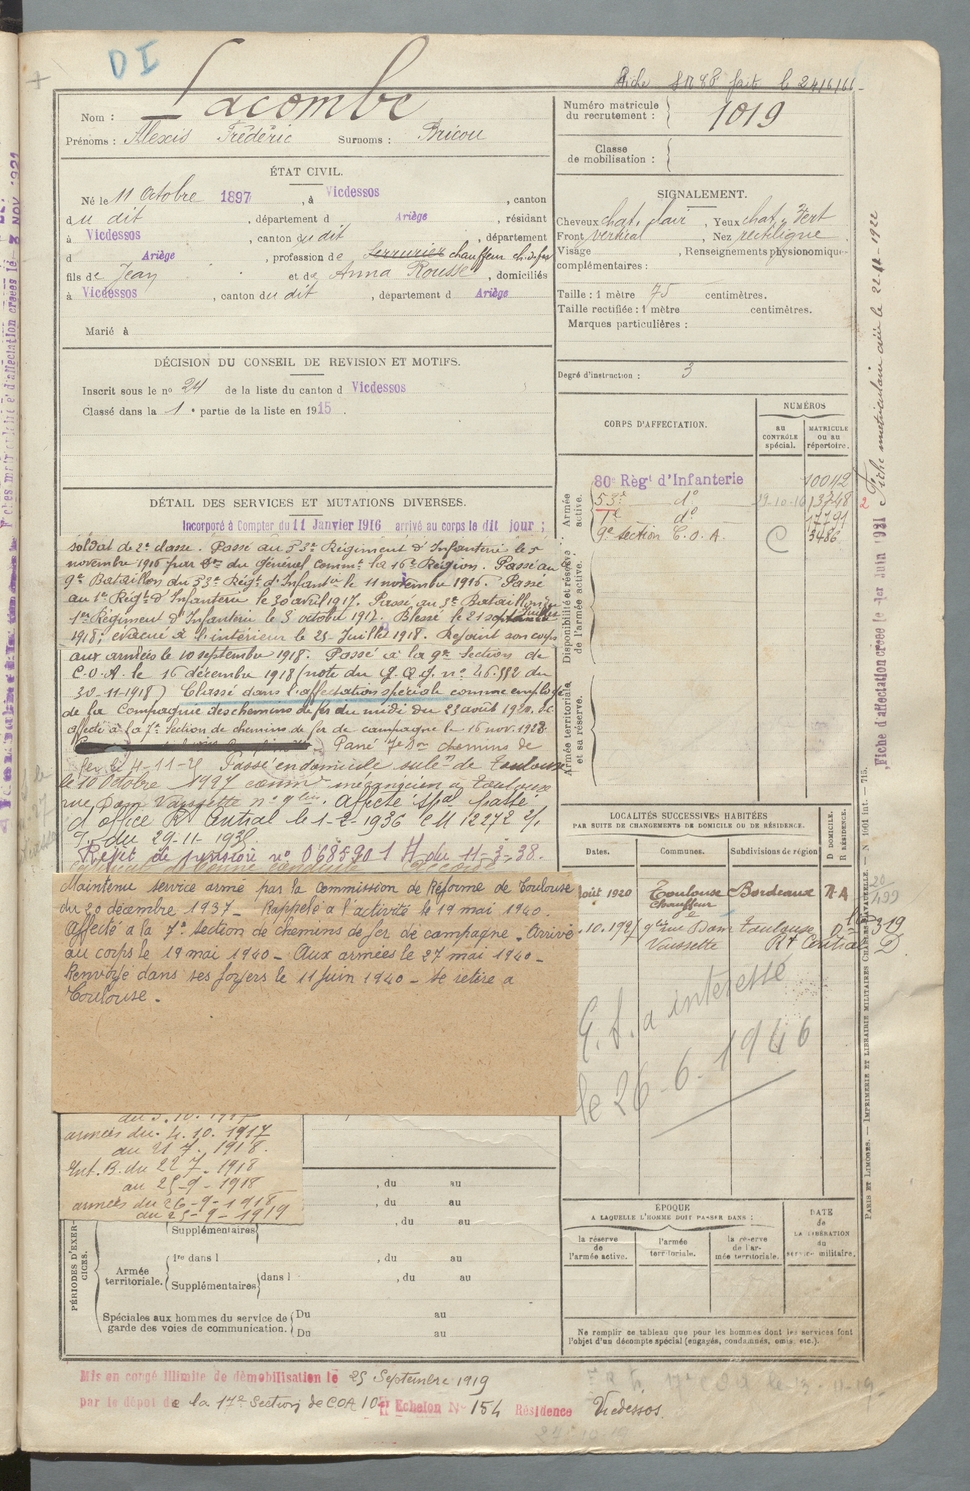 DI
Fiche
Nom : Lacombe
Prénoms : Alexis Frédéric Surnoms : Bricou
Numéro matricule du recrutement : 1019
Classe de mobilisation :
ÉTAT CIVIL.
Né le 11 Octobre 1897, à Vicdessos, canton
du dit, département d Ariège, résidant
à Vicdessos, canton du dit, département
d Ariège, profession de serrurier chauffeur ch. de fer
fils de Jean et de Anna Rousse, domiciliés
à Vicdessos, canton du dit, département d Ariège
Marié à
SIGNALEMENT.
Cheveux chat. clair, Yeux chat. vert
Front vertical, Nez rectiligne
Visage , Renseignements physionomiques
complémentaires :
Taille : 1 mètre 75 centimètres.
Taille rectifiée : 1 mètre centimètres.
Marques particulières :
Degré d'instruction : 3
DÉCISION DU CONSEIL DE REVISION ET MOTIFS.
Inscrit sous le n° 24 de la liste du canton d Vicdessos
Classé dans la 1e partie de la liste en 1915.
CORPS D'AFFECTATION.
NUMÉROS
AU CONTRÔLE spécial.
MATRICULE OU AU RÉPERTOIRE.
Armée active.
80e Règt d'Infanterie 10042
53e do 13248
1e do
9e section C.O.A. C 3436
Disponibilité et réserve de l'armée active.
Armée territoriale et sa réserve.
DÉTAIL DES SERVICES ET MUTATIONS DIVERSES.
Incorporé à Compter du 11 Janvier 1916 arrivé au corps le dit jour ;
soldat de 2e classe. Passé au 53e Régiment d'Infanterie le 5
novembre 1916 par Or. du général Commt la 16e Région. Passé au
9e Bataillon du 53e Régt d'Infantie le 11 novembre 1916. Passé
au 1er Régt d'Infanterie le 30 avril 1917. Passé au 3e Bataillon du
1er Régiment d'Infanterie le 3 octobre 1917. Blessé le 21 septembre Juillet
1918; évacué à l'intérieur le 23 Juillet 1918. Rejoint son corps
aux armées le 10 septembre 1918. Passé à la 9e Section de
C.O.A. le 16 décembre 1918 (note du G.Q.G. n° 46.552 du
30-11-1918) Classé dans l'affectation spéciale comme employé
de la Compagnie des chemins de fer du midi du 23 août 1920.
affecté à la 7e Section de chemins de fer de campagne le 16 nov. 1928
Passé chemins de
fer le 4-11-
le 10 Octobre 1927 comm mécanicien à Toulouse
rue Dom Vaissette n° 9 bis. Affecté spal passé
d'office Rt Central le 1-2-1936 CM 12272 2/1
du 29-11-1935
Rejet de pension n° 0685901 H du 11-3-38.
Maintenu service armé par la Commission de Réforme de Toulouse
du 20 décembre 1937 - Rappelé à l'activité le 19 mai 1940.
Affecté à la 7e section de chemins de fer de campagne. Arrivé
au corps le 19 mai 1940 - Aux armées le 27 mai 1940 -
Renvoyé dans ses foyers le 11 juin 1940 - Se retire à
Toulouse.
armées du 4.10.1917
au 21.7.1918.
Int. B. du 22.7.1918
au 25-9-1918
armées du 26-9-1918
au 25-9-1919
LOCALITÉS SUCCESSIVES HABITÉES
PAR SUITE DE CHANGEMENTS DE DOMICILE OU DE RÉSIDENCE.
Dates. Communes. Subdivisions de région D DOMICILE. R RÉSIDENCE.
Août 1920 Toulouse Bordeaux R A
Chauffeur
.10.192 9 bis rue Dom Vaissette Toulouse Rt Central D
319
D
20/499
G. S. a intéressé
le 26-6-1946
PÉRIODES D'EXERCICES.
, du au
, du au
Supplémentaires , du au
Armée territoriale.
1re dans l , du au
Supplémentaires dans l , du au
Spéciales aux hommes du service de garde des voies de communication.
Du au
Du au
ÉPOQUE
A LAQUELLE L'HOMME DOIT PASSER DANS :
la réserve de l'armée active.
l'armée territoriale.
la réserve de l'armée territoriale.
DATE de LA LIBÉRATION du service militaire.
Ne remplir ce tableau que pour les hommes dont les services font
l'objet d'un décompte spécial (engagés, condamnés, omis, etc.).
Mis en congé illimité de démobilisation le 25 Septembre 1919
par le dépot de la 17e Section de COA 10e Echelon N° 154 Résidence Vicdessos.
Fiche d'affectation créée le 1er Juin 1931
Fiche matriculaire
PARIS ET LIMOGES. — IMPRIMERIE ET LIBRAIRIE MILITAIRES CHARLES-LAVAUZELLE.